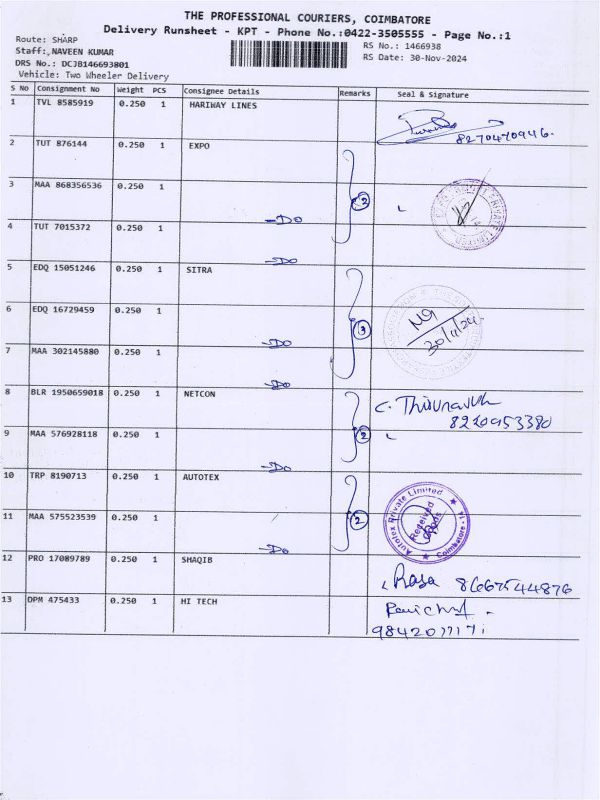 THE PROFESSIONAL COURIERS, COIMBATORE
Delivery Runsheet - KPT - Phone No.:0422-3505555 - Page No.:1
Route: SHARP
RS No.: 1466938
Staff:,NAVEEN KUMAR
RS Date: 30-Nov-2024
DRS No.: DCJB146693801
Vehicle: Two Wheeler Delivery
S No Consignment No Weight PCS Consignee Details Remarks Seal & Signature
1 TVL 8585919 0.250 1 HARIWAY LINES
8270470946.
2 TUT 876144 0.250 1 EXPO
3 MAA 868356536 0.250 1 -Do 2
4 TUT 7015372 0.250 1 -Do
5 EDQ 15051246 0.250 1 SITRA
6 EDQ 16729459 0.250 1 -Do 3 30/11/24.
7 MAA 302145880 0.250 1 -Do
8 BLR 1950659018 0.250 1 NETCON
8220953380
9 MAA 576928118 0.250 1 -Do 2
10 TRP 8190713 0.250 1 AUTOTEX
11 MAA 575523539 0.250 1 -Do 2
Autotex Private Limited
Received
Coimbatore - 14
12 PRO 17089789 0.250 1 SHAQIB
Rasa 8667544876
13 DPM 475433 0.250 1 HI TECH